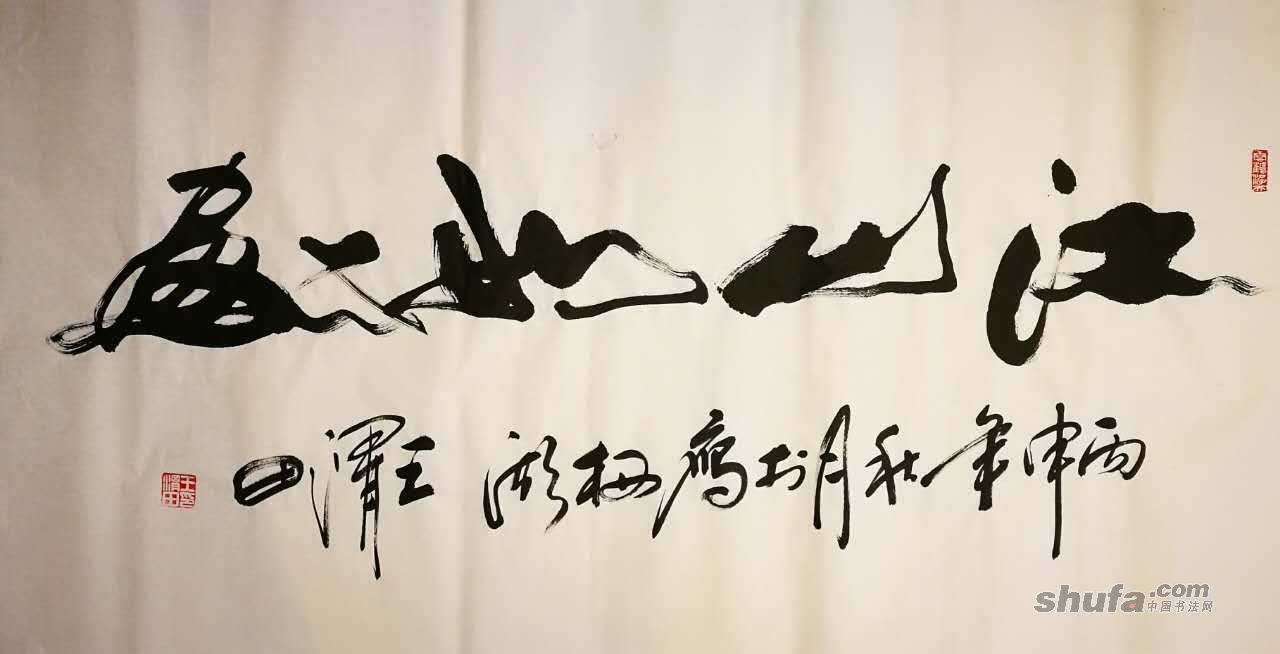 江山如此多
丙申年秋月于雁栖湖 王渭田
shufa.com
中国书法网